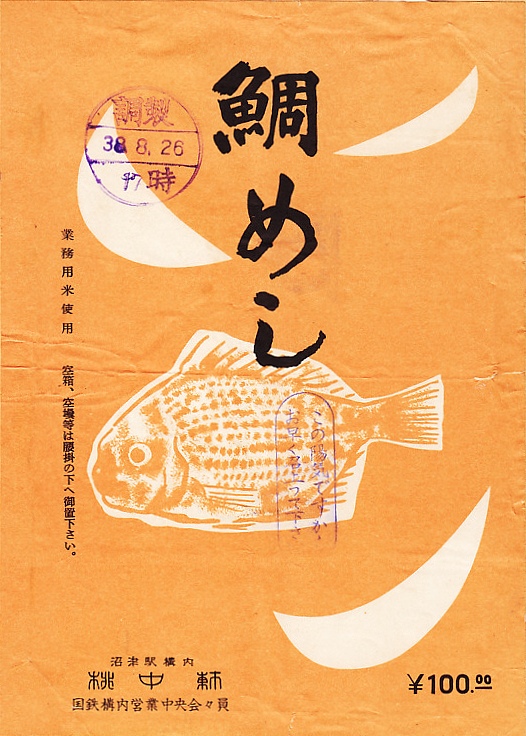 鯛めし
調製
38.8.26
時
業務用米使用
空箱、空壜等は腰掛の下へ御置下さい。
この陽気ですから
お早く召上って下さい
沼津駅構内
桃中軒
国鉄構内営業中央会々員
¥100.00